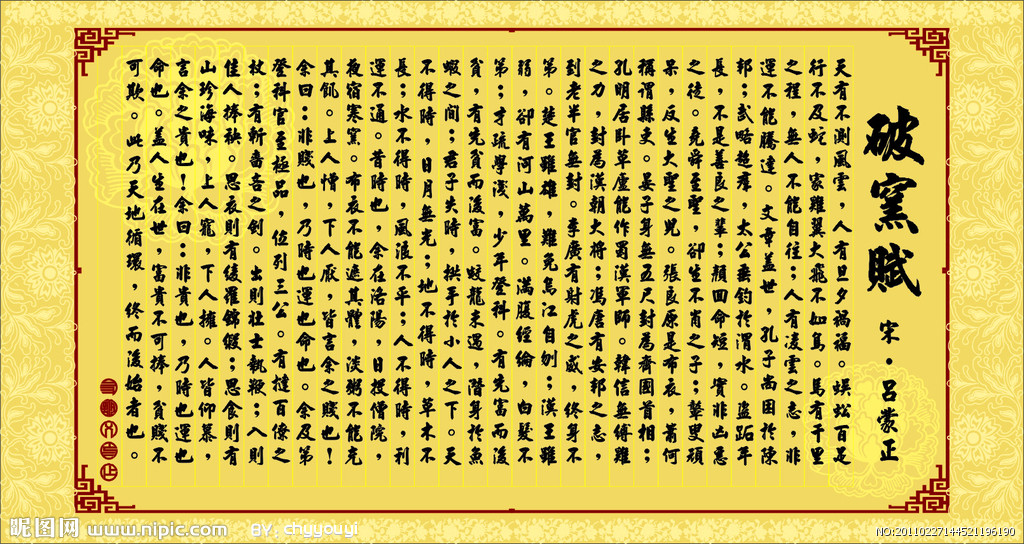 破窯賦
宋·呂蒙正
天有不測風雲，人有旦夕禍福。蜈蚣百足
行不及蛇，家雞翼大飛不如鳥。馬有千里
之程，無人不能自往；人有凌雲之志，非
運不能騰達。文章蓋世，孔子尚困於陳
邦；武略超群，太公垂釣於渭水。盜跖年
長，不是善良之輩；顏回命短，實非凶惡
之徒。堯舜至聖，卻生不肖之子；瞽叟頑
呆，反生大聖之兒。張良原是布衣，蕭何
稱謂縣吏。晏子身無五尺封為齊國首相；
孔明居臥草廬能作蜀漢軍師。韓信無縛雞
之力，封為漢朝大將；馮唐有安邦之志，
到老半官無封。李廣有射虎之威，終身不
第。楚王雖雄，難免烏江自刎；漢王雖
弱，卻有河山萬里。滿腹經綸，白髮不
第；才疏學淺，少年登科。有先富而後
貧，有先貧而後富。蛟龍未遇，潛身於魚
蝦之間；君子失時，拱手於小人之下。天
不得時，日月無光；地不得時，草木不
長；水不得時，風浪不平；人不得時，利
運不通。昔時也，余在洛陽，日投僧院，
夜宿寒窯。布衣不能遮其體，淡粥不能充
其飢。上人憎，下人厭，皆言余之賤也！
余曰：非賤也，乃時也運也命也。余及第
登科官至極品，位列三公。有撻百僚之
杖；有斬嗇吝之劍。出則壯士執鞭；入則
佳人捧秧。思衣則有綾羅錦緞；思食則有
山珍海味，上人寵，下人擁。人皆仰慕，
言余之貴也！余曰：非貴也，乃時也運也
命也。蓋人生在世，富貴不可捧，貧賤不
可欺。此乃天地循環，終而復始者也。
昵图网 www.nipic.com BY: chyyouyi
NO:20110227144521196190